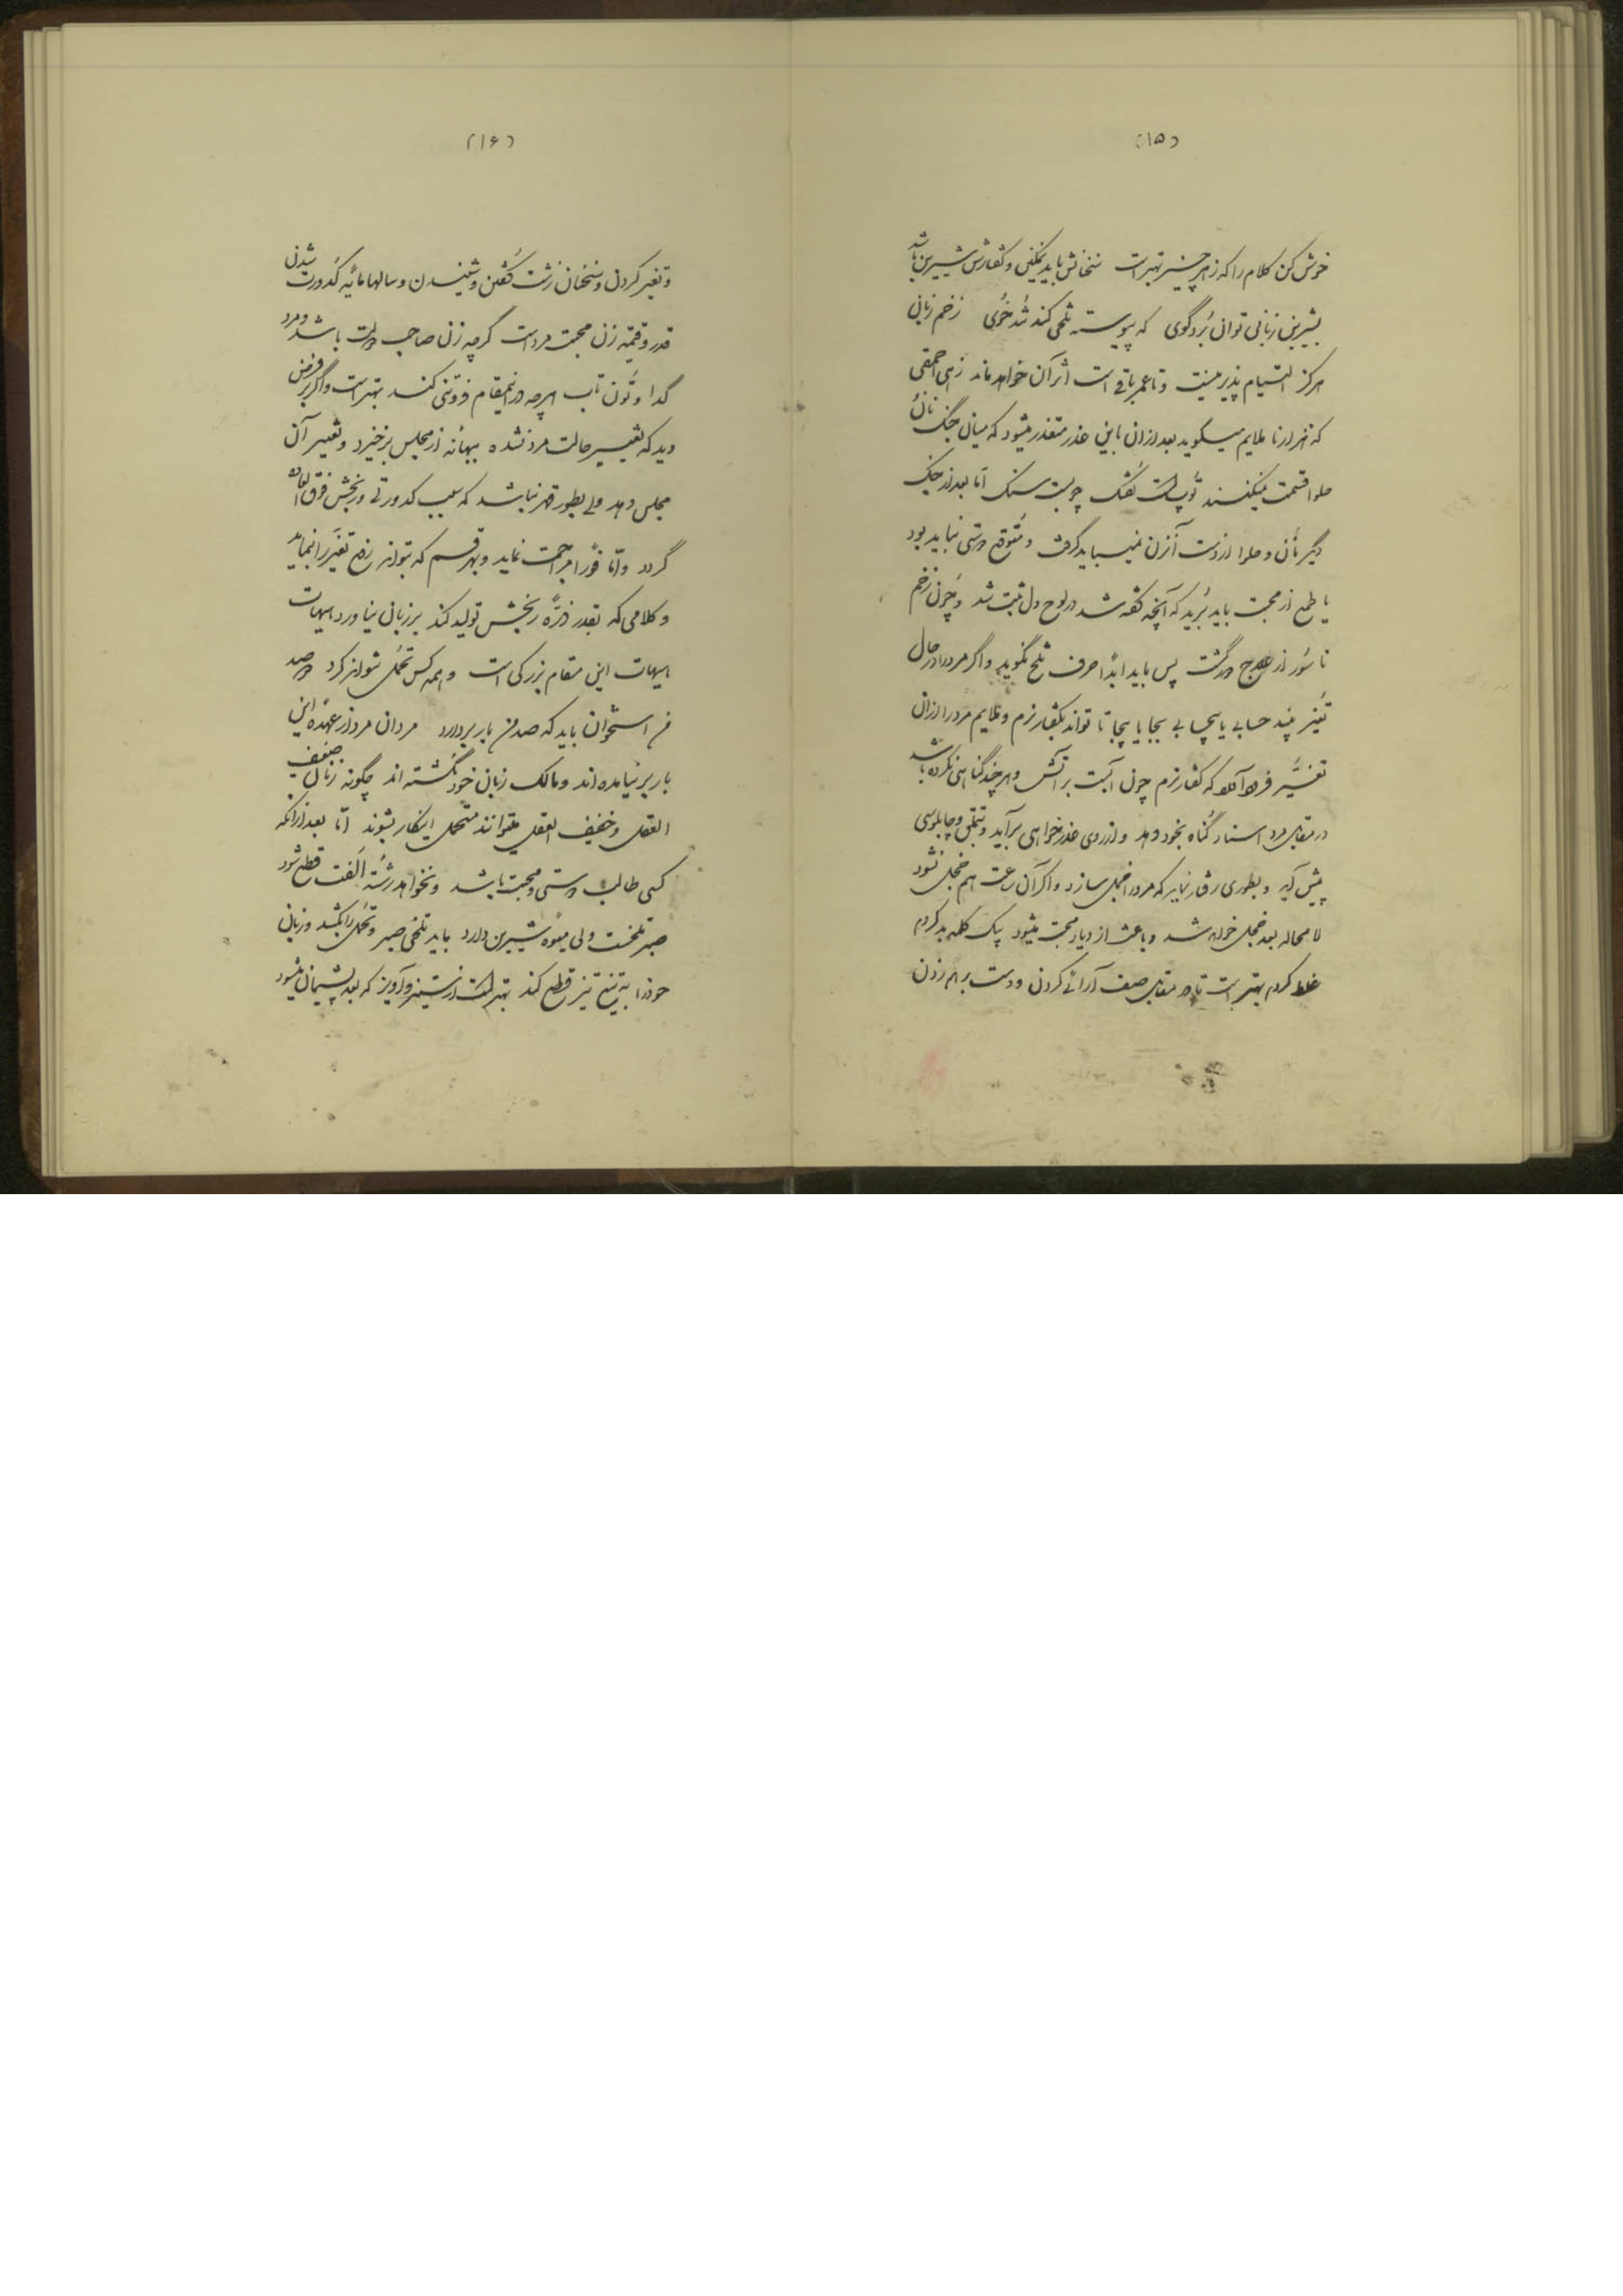 (۱۵)
خوش کن کلام را که ز هر چیز بهتر است سخنانش باید نمکین و گفتارش شیرین باشد
بشیرین زبانی توان بُرد گوی که پیوسته تلخی کند تُند خُوی زخم زبان
هرگز التیام پذیر نیست و تا عمر باقی است اثر آن خواهد ماند زهی احمقی
که هزار نا ملایم میگوید بعد از آن باین عذر متعذر میشود که میان جنگ نان
حلوا قسمت نمیکنند تُوپ است تُفنگ چوبست سنگ اما بعد از جنگ
دیگر نان و حلوا از دست آنزن نمیباید گرفت و متوقع دوستی نباید بود
یا طمع از محبت باید بُرید که آنچه گفته شد در لوح دل ثبت شد و چون زخم
ناسُور از علاج در گذشت پس باید ابداً حرف تلخ نگوید و اگر مرد را در حال
تغیّر بیند حسابی یا بیحسابی بجا یا بیجا تا تواند بگفتار نرم و ملایم مرد را از آن
تغیّر فرود آورد که گفتار نرم چون آبست بر آتش و هر چند گناهی نکرده باشد
در مقابل مرد اسناد گناه بخود دهد و از روی عذر خواهی برآید و تملق و چاپلوسی
پیش گیرد و بطوری رفتار نماید که مرد را خجل سازد و اگر آن ساعت هم خجل نشود
لا محاله بعد خجل خواهد شد و باعث ازدیاد محبت میشود یک کلمه بد کردم
غلط کردم بهتر است تا در مقابل صف آرائی کردن و دست برهم زدن
(۱۶)
و تغیر کردن و سخنان زشت گفتن و شنیدن و سالها مایه کدورت شدن
قدر و قیمت زن محبت مرد است گرچه زن صاحب دولت باشد و مرد
گدا و تُون تاب هر چه در اینمقام فروتنی کند بهتر است و اگر بر فرض
دید که تغییر حالت مرد نشده ببهانه از مجلس برخیزد و تغییر آن
مجلس دهد ولی بطور قهر نباشد که سبب کدورتی و رنجش فوق العاده
گردد و امّا فوراً مراجعت نماید و بهر قسم که بتواند رفع تغیّر را نماید
و کلامی که بقدر ذرّه رنجش تولید کند بر زبان نیاورد هیهات
هیهات این مقام بزرگی است و همه کس تحمّل نتواند کرد و صد
من استخوان باید که صد من بار بردارد مردان مرد از عهده این
بار بر نیامده اند و مالک زبان خود نگشته اند چگونه زنان ضعیف
العقل و خفیف العقل میتوانند متحمل اینکار بشوند امّا بعد از آنکه
کسی طالب دوستی و محبت باشد و نخواهد رشته اُلفت قطع شود
صبر تلخست ولی میوه شیرین دارد باید تلخی صبر و تحمّل را بکشد و زبان
خود را به تیغ تیز قطع کند بهتر است از ستیز و آویز که بعد پشیمان میشود